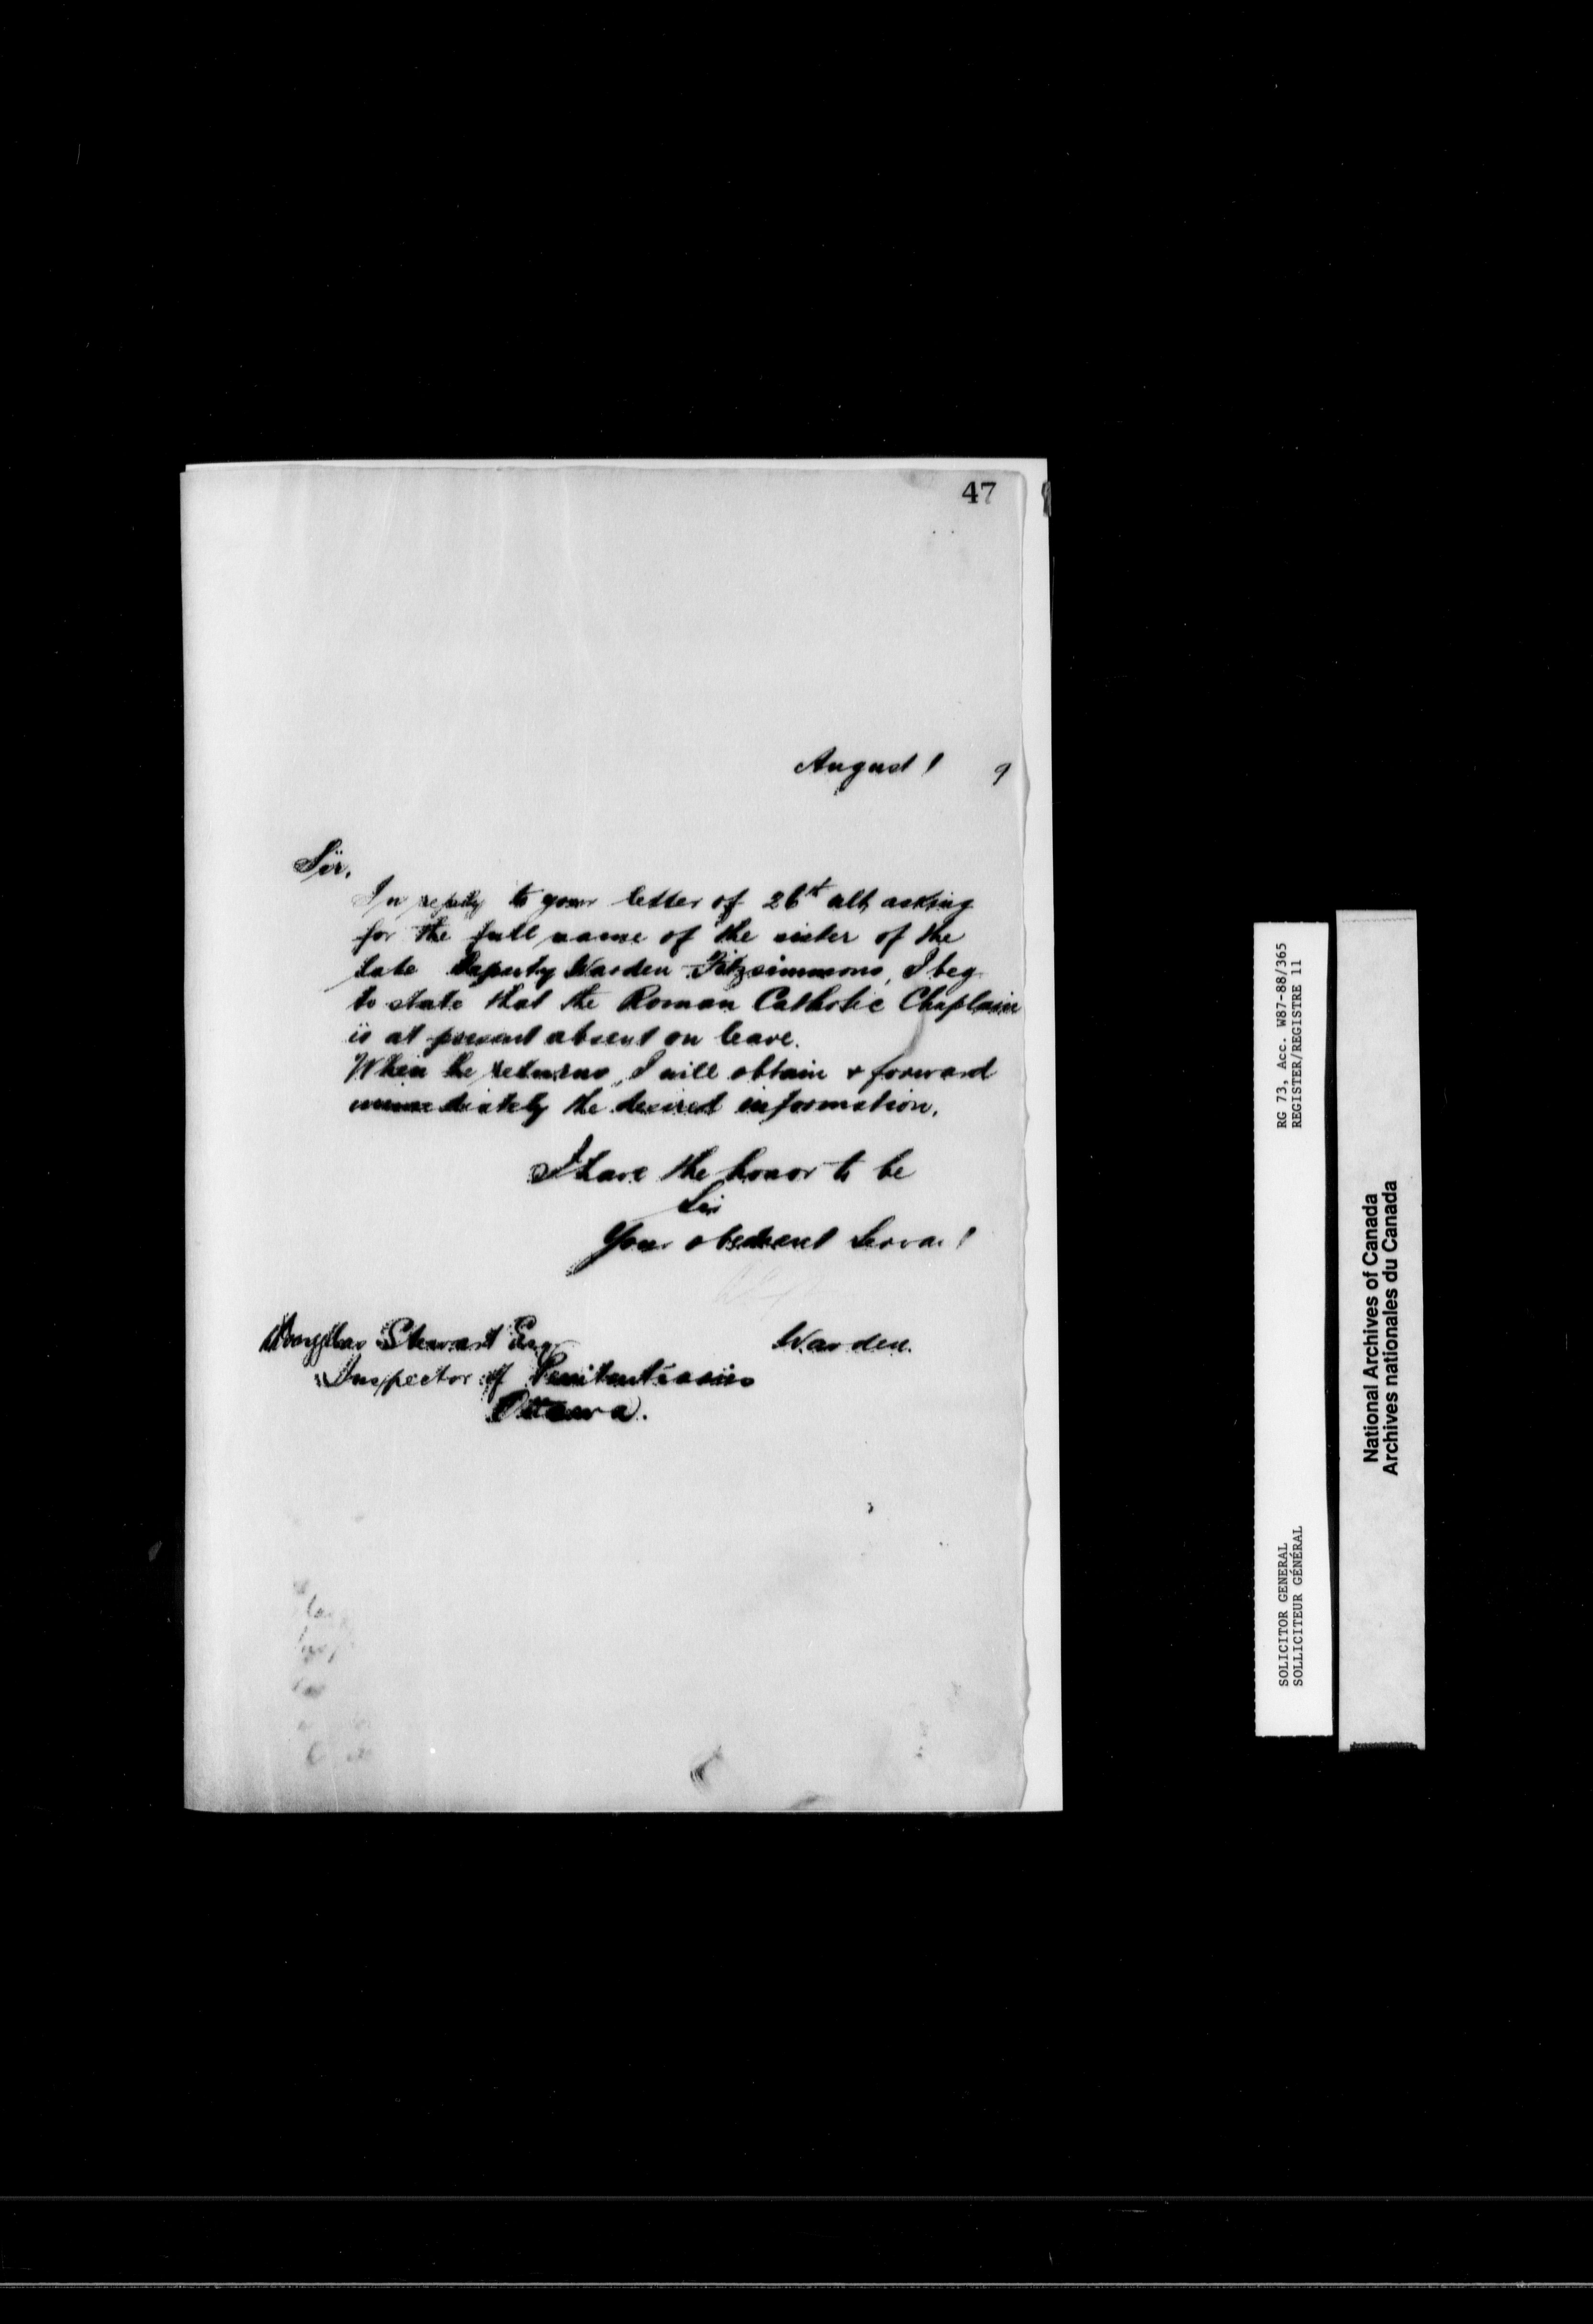 47
August 1 9
Sir,
In reply to your letter of 26st ult, asking
for the full name of the sister of the
late Deputy Warden Fitzsimmons, I beg
to state that the Roman Catholic Chaplain
is at present absent on leave.
When he returns, I will obtain & forward
immediately the desired information.
I have the honor to be
Sir
Your obedient Servant
Douglas Stewart Esq
Warden.
Inspector of Penitentiaries
Ottawa.
RG 73, Acc. W87-88/365
REGISTER/REGISTRE 11
SOLICITOR GENERAL
SOLLICITEUR GÉNÉRAL
National Archives of Canada
Archives nationales du Canada